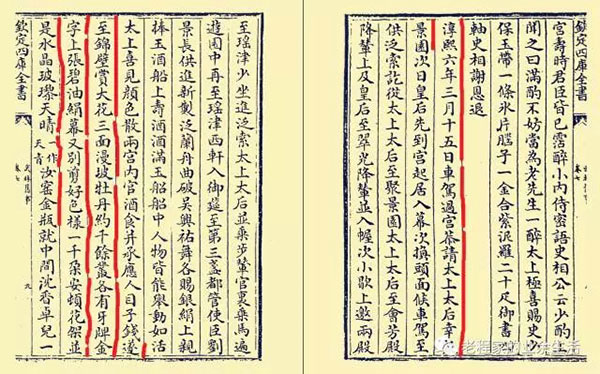 欽定四庫全書
宮壽時君臣皆已霑醉小內侍密語史相公云少酌上
聞之曰滿酌不妨當為老先生一醉太上極喜賜史少
保玉帶一條氷片腦子一金合紫泥羅二十疋御書
軸史相謝恩退
淳熙六年三月十五日車駕過宮恭請太上太后幸聚
景園次日皇后先到宮起居入幕次換頭面候車駕至
供泛索訖從太上太后至聚景園太上太后至會芳殿
降輦上及皇后至翠光降輦並入幄次小歇上邀兩殿
至瑤津少坐進泛索太上太后並乘步輦官裏乘馬遍
遊園中再至瑤津西軒入御筵至第三盞都管使臣劉
景長供進新製泛蘭舟曲破吳興祐舞各賜銀絹上親
捧玉酒船上壽酒酒滿玉船船中人物皆能舉動如活
太上喜見顏色散兩宮內官酒食并承應人目子錢遂
至錦壁賞大花三面漫坡牡丹約千餘叢各有牙牌金
字上張碧油絹幕又別剪好色樣一千朶安頓花架並
是水晶玻瓈天晴一作天青汝窰金瓶就中間沈香卓兒一
欽定四庫全書
武林舊事
卷七
九
老程家的
生活